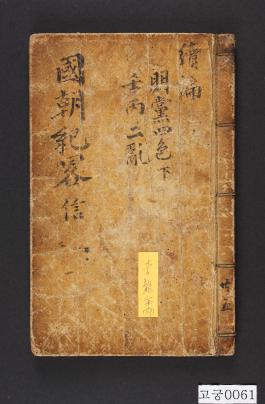 續編
朋黨四色下
壬丙二亂
國朝紀畧 信
고궁0061